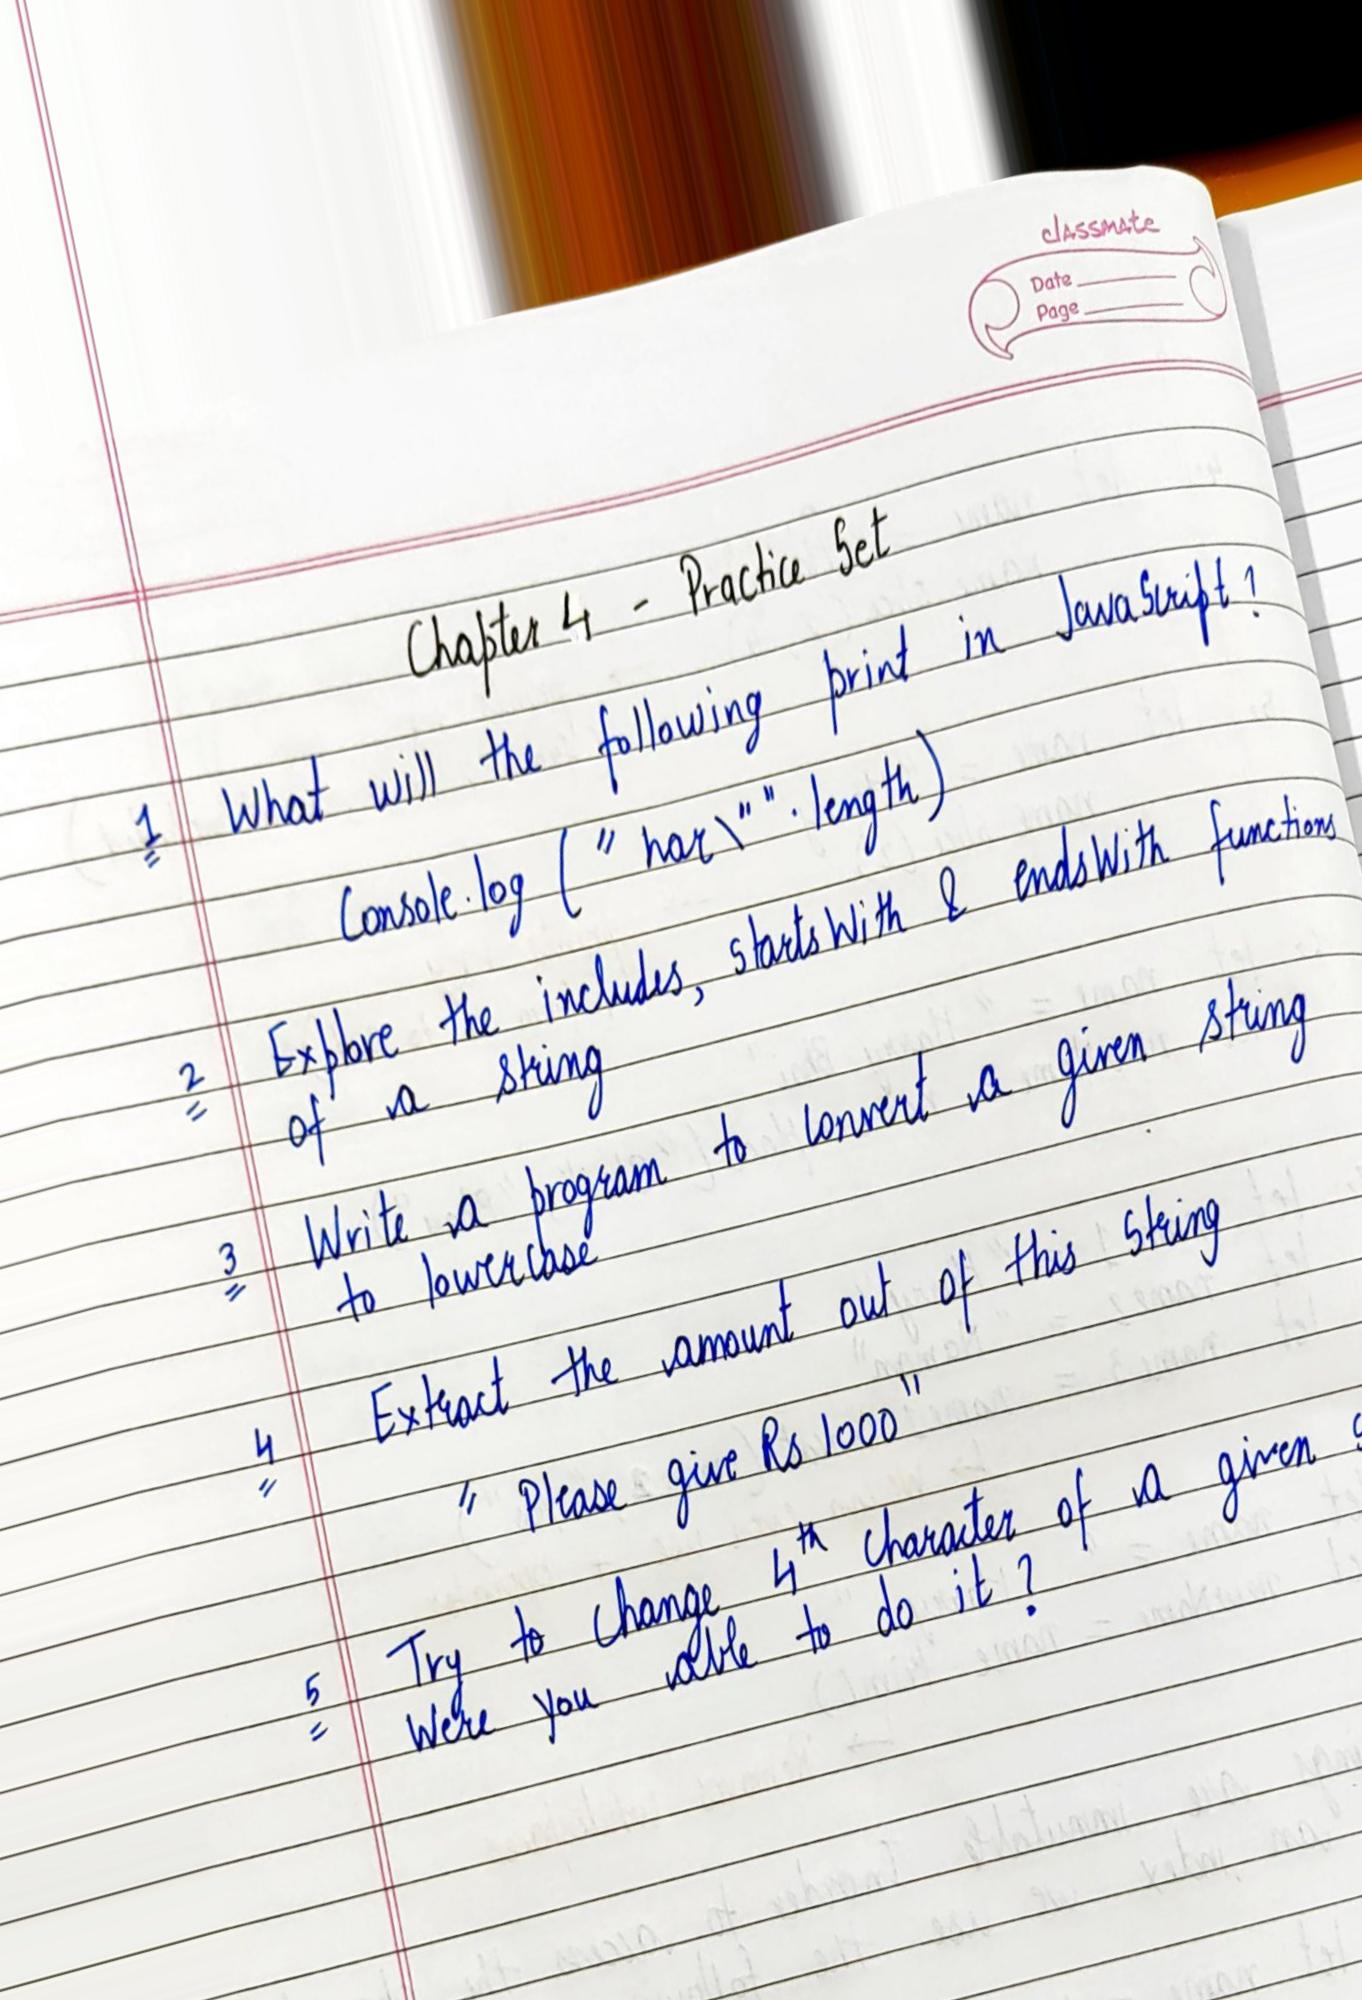 classmate
Date
Page
Chapter 4 - Practice Set
1 What will the following print in JavaScript?
Console.log ("har\"".length)
2 Explore the includes, startsWith & endsWith functions
of a string
3 Write a program to convert a given string
to lowercase
4 Extract the amount out of this string
"Please give Rs 1000"
5 Try to change 4th character of a given
Were you able to do it?